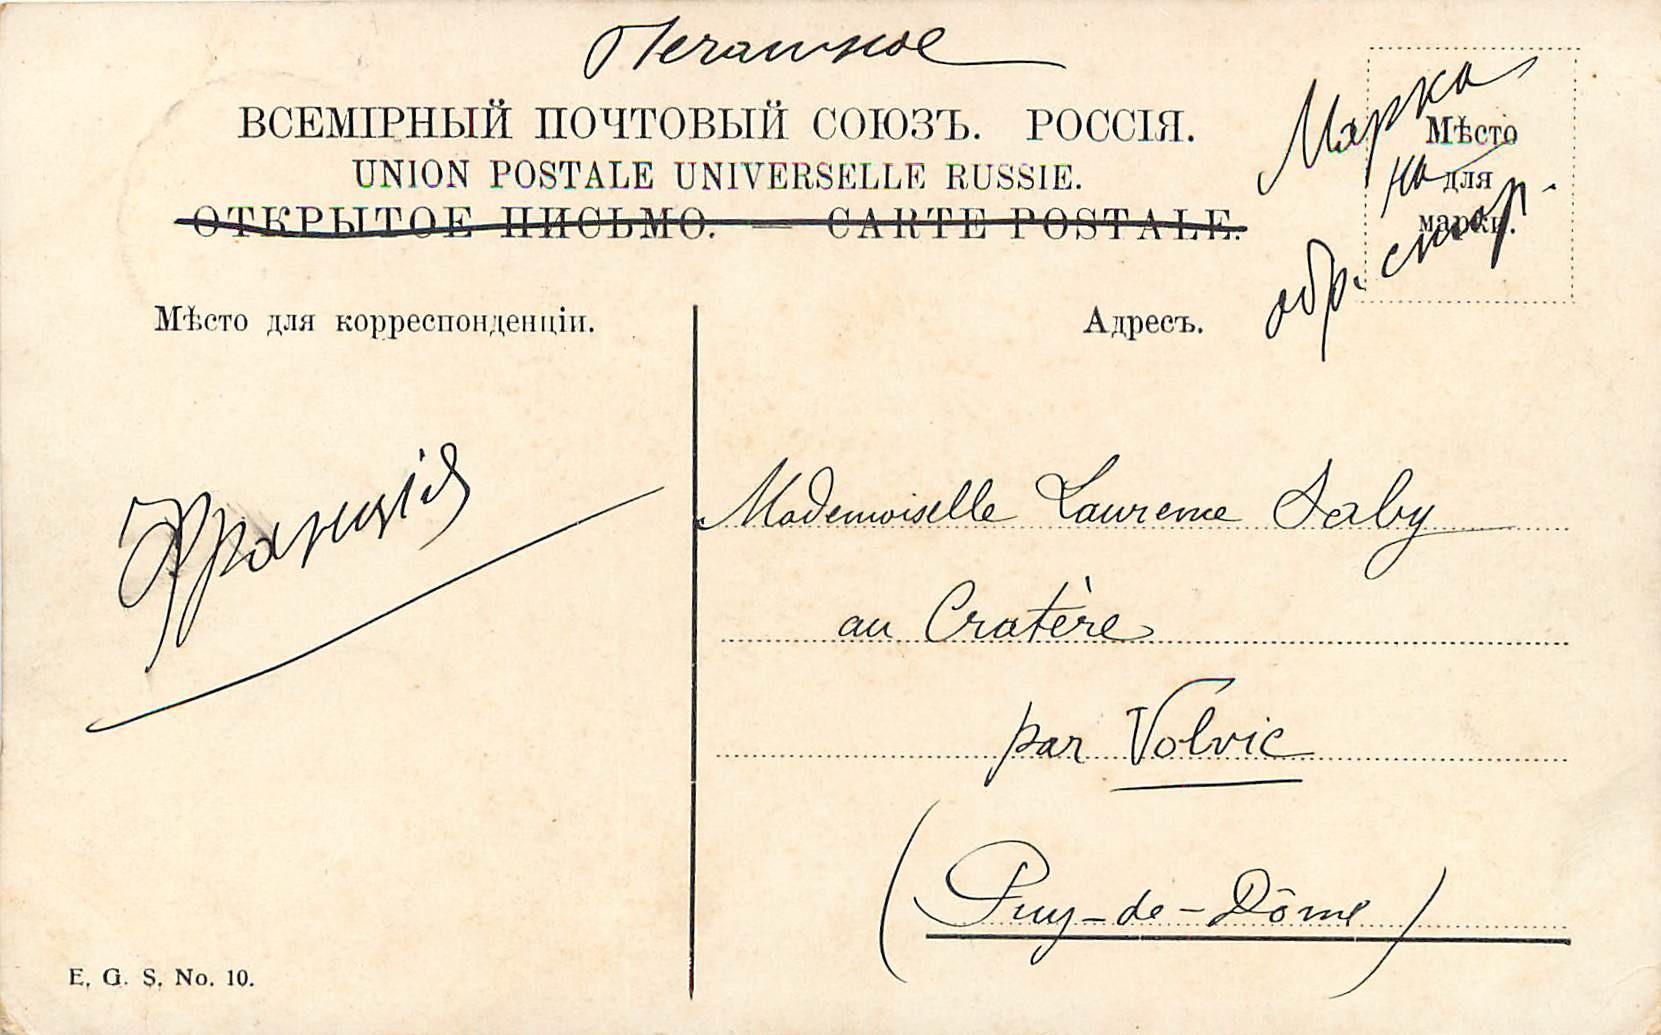 Печатное
ВСЕМІРНЫЙ ПОЧТОВЫЙ СОЮЗЪ. РОССІЯ.
UNION POSTALE UNIVERSELLE RUSSIE.
ОТКРЫТОЕ ПИСЬМО. — CARTE POSTALE.
Марка
на
обр. стор.
Мѣсто
для
марки.
Мѣсто для корреспонденціи.
Адресъ.
Франція
Mademoiselle Laurence Saby
au Cratère
par Volvic
(Puy-de-Dôme)
E. G. S. No. 10.